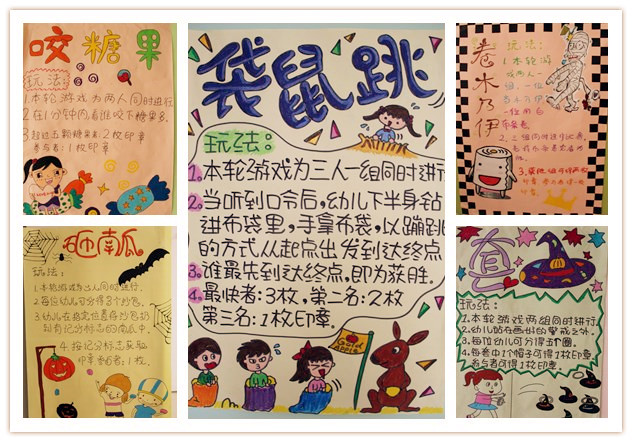 咬糖果
玩法:
1.本轮游戏为两人同时进行
2.在1分钟内看谁咬下糖果多.
3.超过五颗糖果者:2枚印章
参与者:1枚印章
砸南瓜
玩法:
1.本轮游戏为三人同时进行.
2.每位幼儿可分得3个沙包.
3.幼儿在指定位置将沙包扔
到有记分标志的南瓜中.
4.按记分标志获取
袋鼠跳
玩法:
1.本轮游戏为三人一组同时进行
2.当听到口令后,幼儿下半身钻
进布袋里,手拿布袋,以蹦跳
的方式从起点出发到达终点
3.谁最先到达终点,即为获胜.
4.最快者:3枚,第二名:2枚
第三名:1枚印章.
卷木乃伊
玩法:
1.本轮游
戏两人
一组,一位
套
玩法:
1.本轮游戏两组同时种行.
2.幼儿站在画世的警戒之外.
3.每位幼儿可分得五个圈.
4.每套中1个帽子可得1枚印章
参与者可得1枚印章.